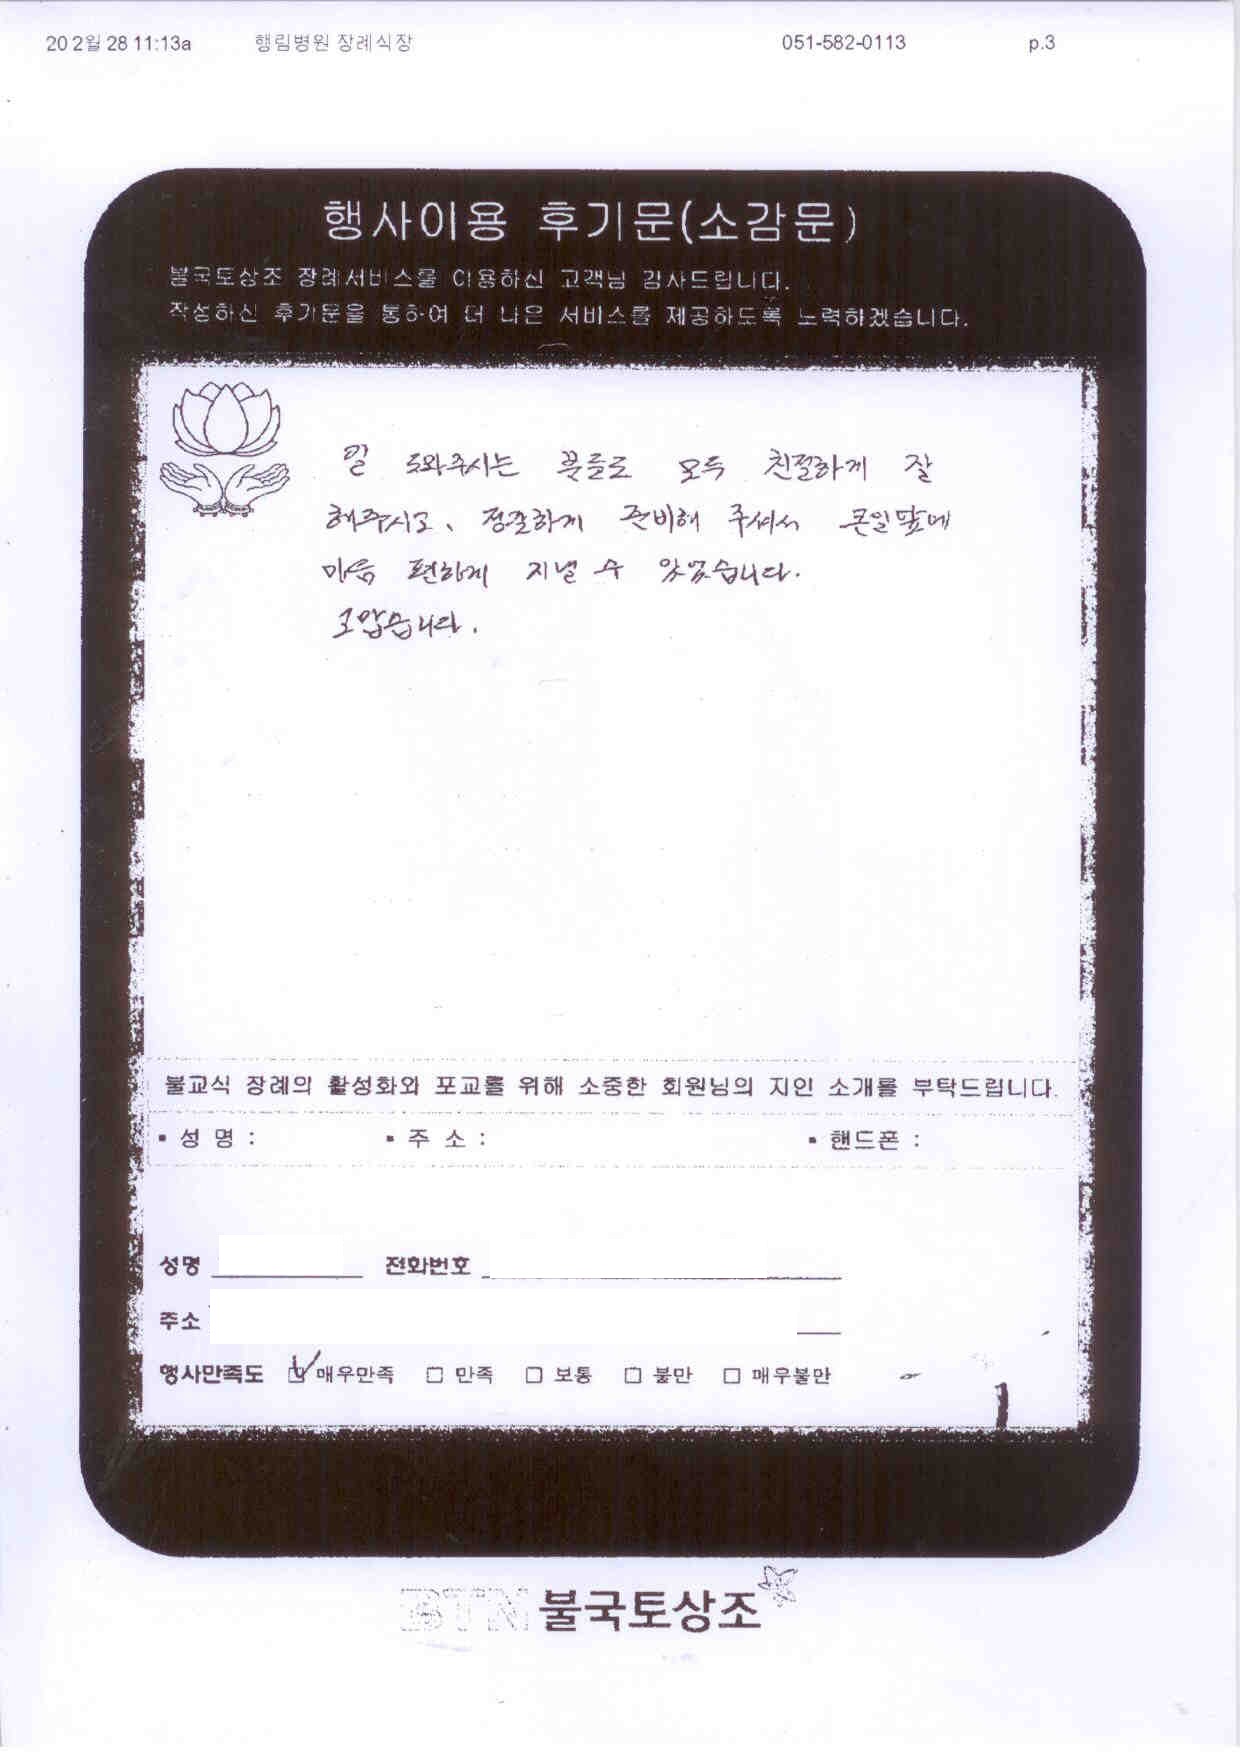 20 2월 28 11:13a 행림병원 장례식장 051-582-0113 p.3
행사이용 후기문(소감문)
불국토상조 장례서비스를 이용하신 고객님 감사드립니다.
작성하신 후기문을 통하여 더 나은 서비스를 제공하도록 노력하겠습니다.
일 도와주시는 분들도 모두 친절하게 잘
해주시고, 정갈하게 준비해 주셔서 큰일 앞에
마음 편하게 지낼 수 있었습니다.
고맙습니다.
불교식 장례의 활성화와 포교를 위해 소중한 회원님의 지인 소개를 부탁드립니다.
▪ 성 명 : ▪ 주 소 : ▪ 핸드폰 :
성명 전화번호
주소
행사만족도 ☑ 매우만족 □ 만족 □ 보통 □ 불만 □ 매우불만
BTN 불국토상조